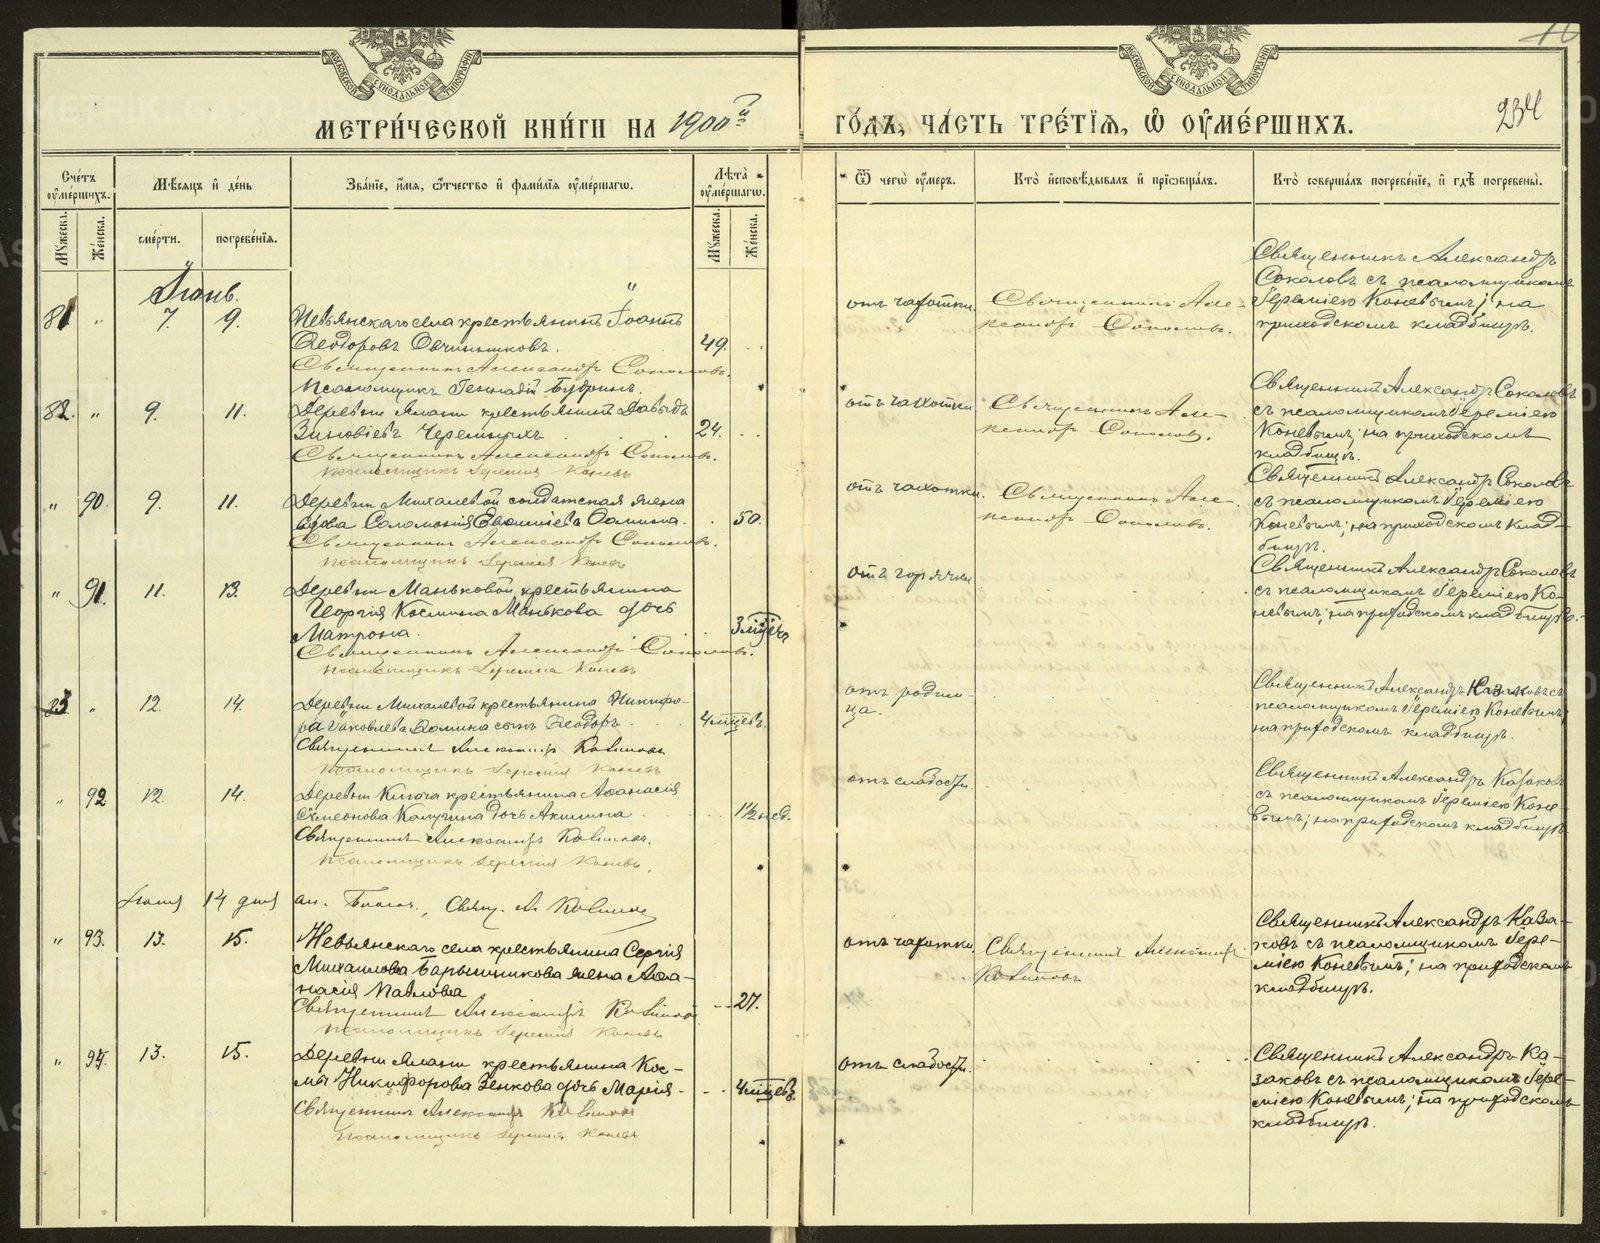 МЕТРИ́ЧЕСКОЙ КНИ́ГИ НА 1900й
ГО́ДЪ, ЧА́СТЬ ТРЕ́ТІѦ, Ѡ҆ ОУ҆МЕ́РШИХЪ.
234
Сче́тъ оу҆ме́ршихъ.
Мѣ́сѧцъ и҆ де́нь
Зва́нїе, и҆́мѧ, ѻ҆́тчество и҆ фами́лїѧ оу҆ме́ршагѡ.
Лѣ́та оу҆ме́ршагѡ.
Ѿ чегѡ̀ оу҆́меръ.
Кто̀ и҆сповѣ́дывалъ и҆ прїѡбща́лъ.
Кто̀ соверша́лъ погребе́нїе, и҆ гдѣ̀ погребены̀.
Мꙋ́жеска.
Же́нска.
сме́рти.
погребе́нїѧ.
Мꙋ́жеска.
Же́нска.
81 „ 7. 9. Невьянскаго села крестьянинъ Іоаннъ
Ѳеодоровъ Овчинниковъ. 49.
Священникъ Александръ Соколовъ.
Псаломщикъ Геннадій
отъ чахотки
Священникъ Александръ Соколовъ.
Священникъ Александръ
Соколовъ съ псаломщикомъ
Іереміею Коневымъ; на
приходскомъ кладбищѣ.
82. „ 9. 11. Деревни Ялани крестьянинъ Давыдъ
Зиновіевъ Черемныхъ 24.
Священникъ Александръ Соколовъ.
Псаломщикъ Іеремія Коневъ
отъ чахотки
Священникъ Александръ Соколовъ.
Священникъ Александръ Соколовъ
съ псаломщикомъ Іереміею
Коневымъ; на приходскомъ
кладбищѣ.
„ 90 9. 11. Деревни Михалевой солдатская жена
вдова Соломонія 50.
Священникъ Александръ Соколовъ.
Псаломщикъ Іеремія Коневъ
отъ чахотки.
Священникъ Александръ Соколовъ.
Священникъ Александръ Соколовъ
съ псаломщикомъ Іереміею
Коневымъ; на приходскомъ клад-
бищѣ.
„ 91. 11. 13. Деревни Маньковой крестьянина
Георгія Космина Манькова дочь
Матрона. 3 мѣсяц
Священникъ Александръ Соколовъ.
Псаломщикъ Іеремія Коневъ
отъ горячки
Священникъ Александръ Соколовъ
съ псаломщикомъ Іереміею Ко-
невымъ; на приходскомъ кладбищѣ.
83 „ 12. 14. Деревни Михалевой крестьянина Никифо-
ра Іаковлева Ѳомина сынъ Ѳеодоръ 4 мѣсяцевъ.
Священникъ Александръ Казаковъ
Псаломщикъ Іеремія Коневъ
отъ родим-
ца.
Священникъ Александръ Казаковъ съ
псаломщикомъ Іереміею Коневымъ
на приходскомъ кладбищѣ.
„ 92 12. 14. Деревни Ключа крестьянина Аѳанасія
Симеонова Калугина дочь Акилина 1½ нед.
Священникъ Александръ Казаковъ.
Псаломщикъ Іеремія Коневъ.
отъ слабости
Священникъ Александръ Казаковъ
съ псаломщикомъ Іереміею Коне-
вымъ; на приходскомъ кладбищѣ.
14 дня
Свящ. Ал. Казаковъ
„ 93. 13. 15. Невьянскаго села крестьянина Сергія
Михаилова Барышникова жена Аѳа-
насія Павлова 27.
Священникъ Александръ Казаковъ
Псаломщикъ Іеремія Коневъ
отъ чахотки
Священникъ Александръ
Казаковъ
Священникъ Александръ Каза-
ковъ съ псаломщикомъ Іере-
міею Коневымъ; на приходскомъ
кладбищѣ.
„ 94. 13. 15. Деревни Ялани крестьянина Кос-
мы Никифорова Зенкова дочь Марія 4 мѣсяцевъ.
Священникъ Александръ Казаковъ
Псаломщикъ Іеремія Коневъ
отъ слабости.
Священникъ Александръ Ка-
заковъ съ псаломщикомъ Іере-
міею Коневымъ; на приходскомъ
кладбищѣ.